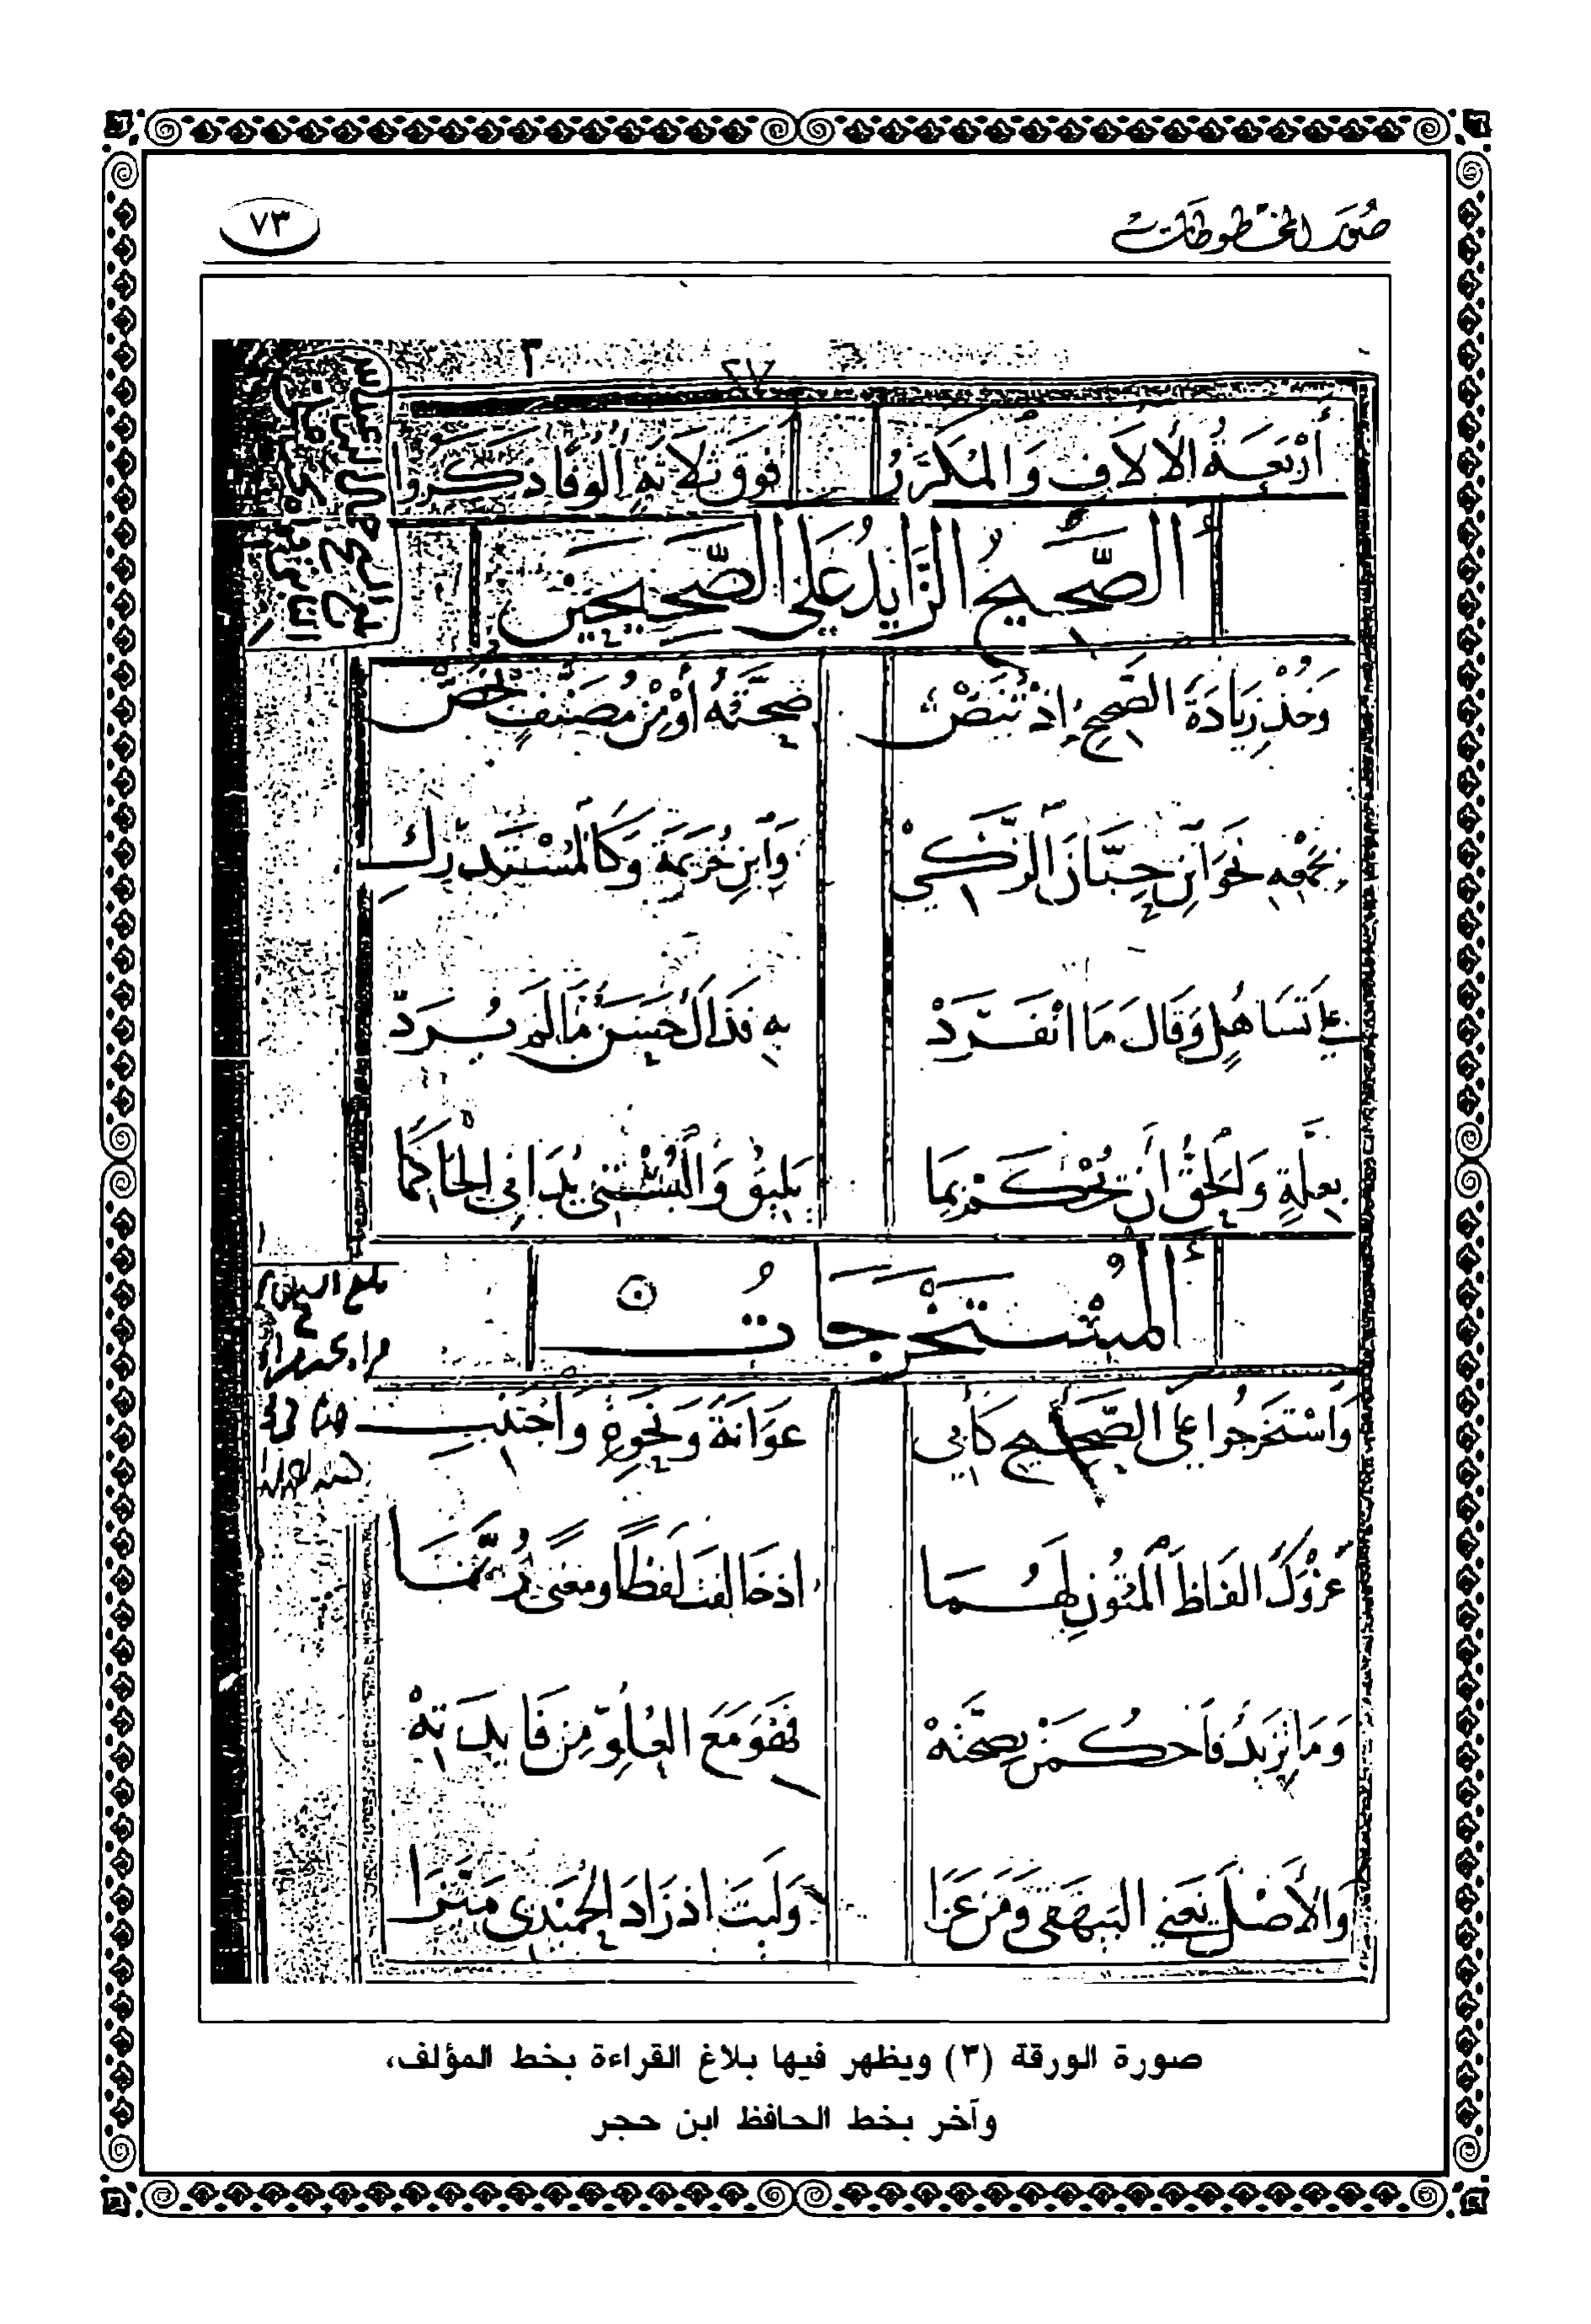 صور المخطوطات
٧٣
٣
٢٧
أَرْبَعَةُ الْآلَافِ وَالْمُكَرَّرُ فَوْقَ ثَلَاثَةٍ أُلُوفًا ذَكَرُوا
الصَّحِيحُ الزَّايِدُ عَلَى الصَّحِيحَيْنِ
وَخُذْ زِيَادَةَ الصَّحِيحِ إِذْ تُنَصّْ صِحَّتُهُ أَوْ مِنْ مُصَنِّفٍ يُخَصّْ
بِجَمْعِهِ نَحْوَ ابْنِ حِبَّانَ الزَّكِيْ وَابْنِ خُزَيْمَةَ وَكَالْمُسْتَدْرَكِ
عَلَى تَسَاهُلٍ وَقَالَ مَا انْفَرَدْ بِهِ فَذَاكَ حَسَنٌ مَا لَمْ يُرَدّْ
بِعِلَّةٍ وَالْحَقُّ أَنْ يُحْكَمْ بِمَا يَلِيقُ وَالْبُسْتِي يُدَانِي الْحَاكِمَا
الْمُسْتَخْرَجَاتُ
وَاسْتَخْرَجُوا عَلَى الصَّحِيحِ كَأَبِي عَوَانَةٍ وَنَحْوِهِ وَاجْتَنِبِ
عَزْوَكَ أَلْفَاظَ الْمُتُونِ لَهُمَا إِذْ خَالَفَتْ لَفْظًا وَمَعْنًى رُبَّمَا
وَمَا تَزِيدُ فَاحْكُمَنْ بِصِحَّتِهْ فَهْوَ مَعَ الْعُلُوِّ مِنْ فَايِدَتِهْ
وَالْأَصْلَ يَعْنِي الْبَيْهَقِي وَمَنْ عَزَا وَلَيْتَ إِذْ زَادَ الْحُمَيْدِي مَيَّزَا
صورة الورقة (٣) ويظهر فيها بلاغ القراءة بخط المؤلف،
وآخر بخط الحافظ ابن حجر